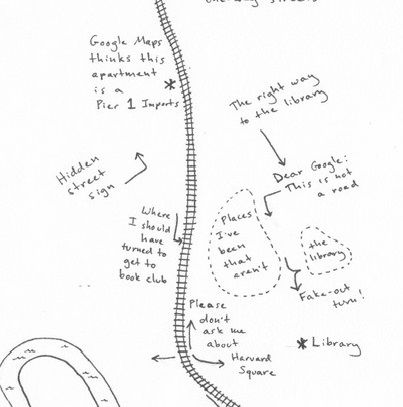 Google Maps
thinks this
apartment
is a
Pier 1 Imports
The right way
to the library
Hidden
street
sign
Dear Google:
This is not
a road
Where
I should
have
turned to
get to
book club
Places
I've
been
that
aren't
the
library
Fake-out
turn!
Please
don't
ask me
about
Harvard
Square
Library